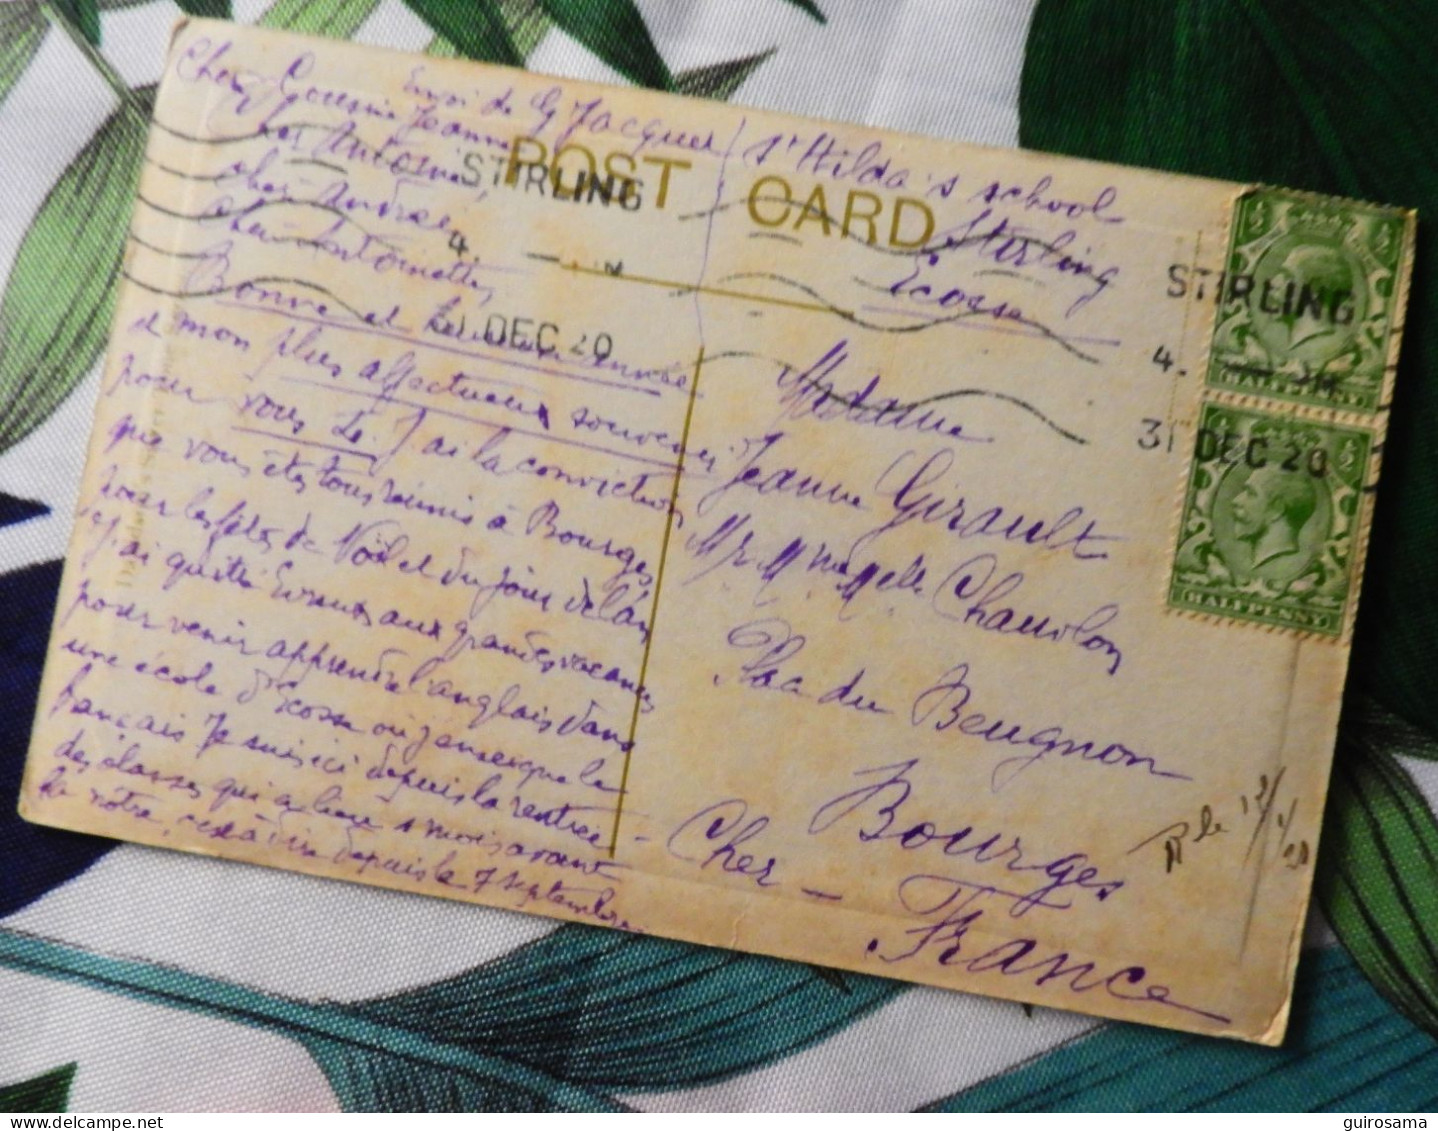 Envoi de G Jacquer
St Hilda's school
Stirling
Ecosse
POST CARD
STIRLING
4.
31 DEC 20
STIRLING
4.
31 DEC 20
HALF PENNY
HALF PENNY
Chère Cousine Jeanne
cher Antoine,
chère Andrée,
Chère Antoinette,
Bonne et heureuse année
et mon plus affectueux souvenir
pour vous tous. J'ai la conviction
que vous êtes tous réunis à Bourges
pour les fêtes de Noël et du jour de l'an
J'ai quitté Evreux aux grandes vacances
pour venir apprendre l'anglais dans
une école d'Ecosse où j'enseigne le
français Je suis ici depuis la rentrée
des classes qui a lieu 1 mois avant
la nôtre, c'est à dire depuis le 7 septembre
Madame
Jeanne Girault
Mr Mme Melle Chamilon
Place du Beugnon
Bourges
Cher —
France
R le 12/1/20
guirosama